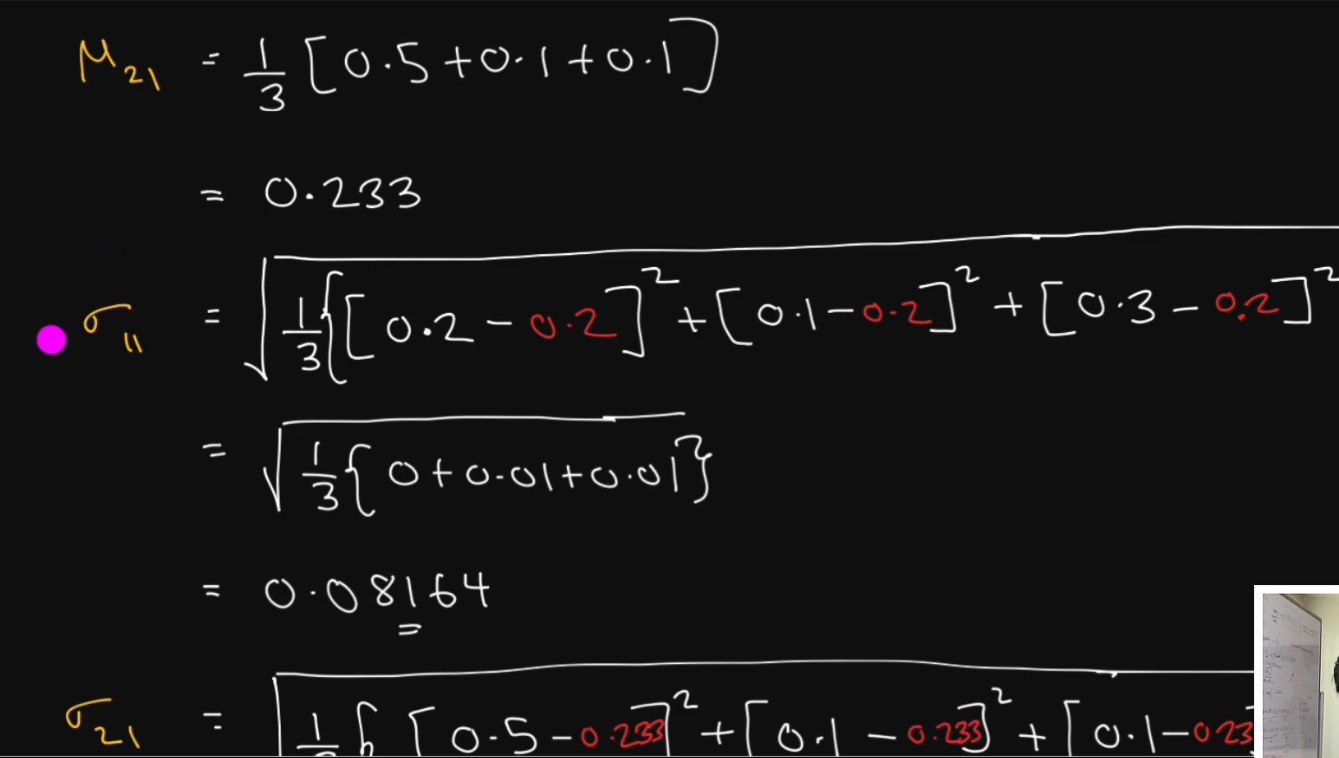 μ₂₁ = 1/3 [0.5+0.1+0.1]
= 0.233
σ₁₁ = √(1/3{[0.2-0.2]²+[0.1-0.2]²+[0.3-0.2]²
= √(1/3{0+0.01+0.01})
= 0.08164
σ₂₁ = √(1/3{[0.5-0.233]²+[0.1-0.233]²+[0.1-0.23